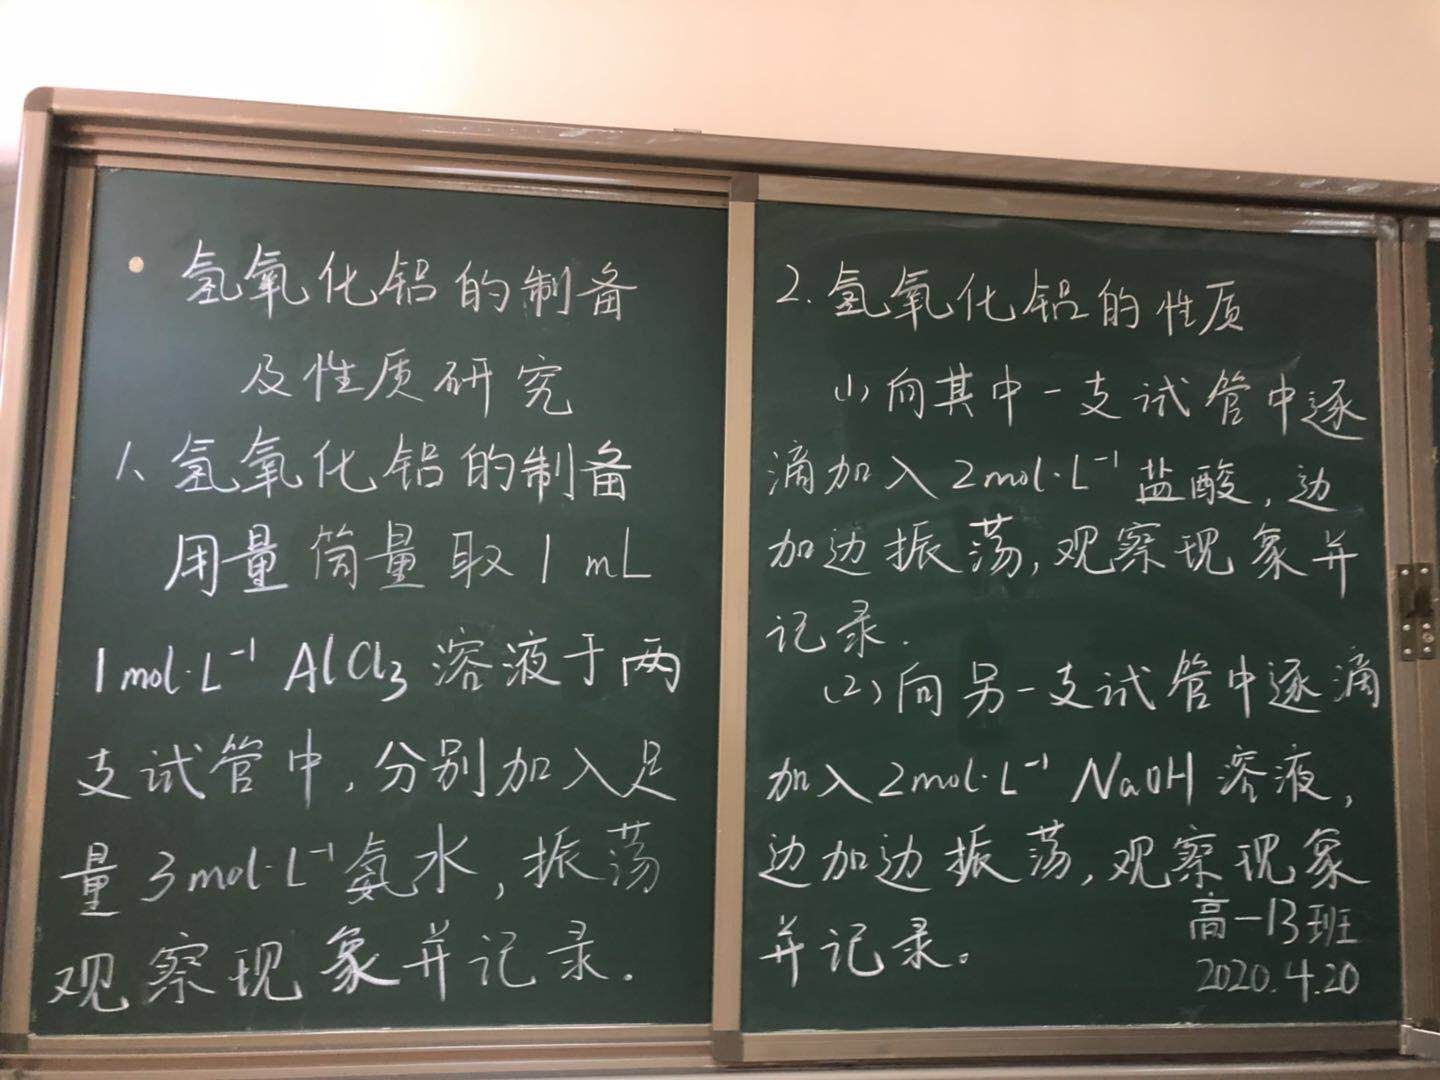 氢氧化铝的制备
及性质研究
1、氢氧化铝的制备
用量筒量取1mL
1mol·L⁻¹ AlCl₃溶液于两
支试管中,分别加入足
量3mol·L⁻¹氨水,振荡
观察现象并记录.
2.氢氧化铝的性质
(1)向其中一支试管中逐
滴加入2mol·L⁻¹盐酸,边
加边振荡,观察现象并
记录.
(2)向另一支试管中逐滴
加入2mol·L⁻¹ NaOH溶液,
边加边振荡,观察现象
并记录。
高一13班
2020.4.20